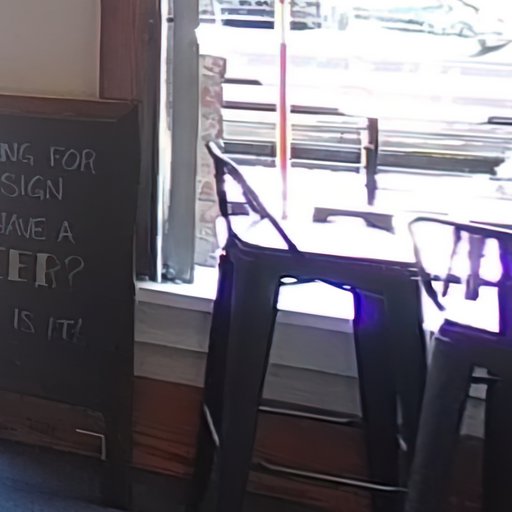 NG FOR
SIGN
HAVE A
EER?
IS IT!